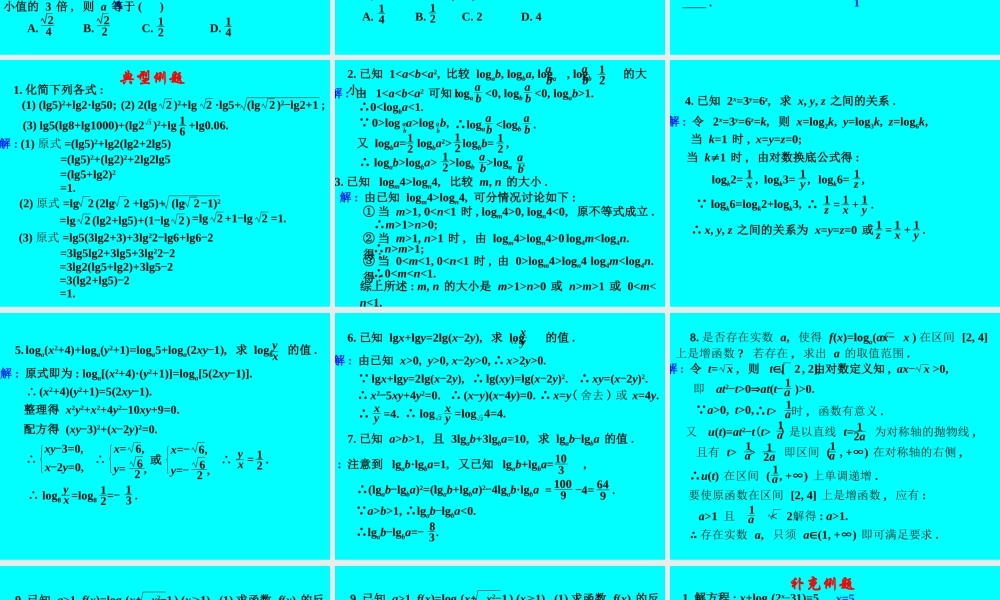 小值的 3 倍 , 则 a 等于 ( )
A. √2/4 B. √2/2 C. 1/2 D. 1/4
A. 1/4 B. 1/2 C. 2 D. 4
____ . 1
典型例题
1. 化简下列各式 :
(1) (lg5)²+lg2·lg50; (2) 2(lg√2)²+lg√2·lg5+√(lg√2)²−lg2+1 ;
(3) lg5(lg8+lg1000)+(lg2^√3)²+lg 1/6 +lg0.06.
解 : (1) 原式 =(lg5)²+lg2(lg2+2lg5)
=(lg5)²+(lg2)²+2lg2lg5
=(lg5+lg2)²
=1.
(2) 原式 =lg√2(2lg√2+lg5)+√(lg√2−1)²
=lg√2(lg2+lg5)+(1−lg√2) =lg√2+1−lg√2=1.
(3) 原式 =lg5(3lg2+3)+3lg²2−lg6+lg6−2
=3lg5lg2+3lg5+3lg²2−2
=3lg2(lg5+lg2)+3lg5−2
=3(lg2+lg5)−2
=1.
2. 已知 1<a<b<a², 比较 logₐb, log_b a, logₐ a/b , log_b a/b, 1/2 的大
解 : 由 1<a<b<a² 可知 : logₐ a/b <0, log_b a/b <0, logₐb>1.
∴0<log_b a<1.
∵ 0> a/b > a/b, ∴logₐ a/b <log_b a/b .
又 log_b a= 1/2 log_b a²> 1/2 log_b b= 1/2 ,
∴ logₐb>log_b a> 1/2 >log_b a/b >logₐ a/b
3. 已知 logₘ4>logₙ4, 比较 m, n 的大小 .
解 : 由已知 logₘ4>logₙ4, 可分情况讨论如下 :
① 当 m>1, 0<n<1 时 , logₘ4>0, logₙ4<0, 原不等式成立 .
∴m>1>n>0;
② 当 m>1, n>1 时 , 由 logₘ4>logₙ4>0 log₄m<log₄n.
得 : ∴n>m>1;
③ 当 0<m<1, 0<n<1 时 , 由 0>logₘ4>logₙ4 log₄m<log₄n.
得 : ∴0<m<n<1.
综上所述 : m, n 的大小是 m>1>n>0 或 n>m>1 或 0<m<
n<1.
4. 已知 2ˣ=3ʸ=6ᶻ, 求 x, y, z 之间的关系 .
解 : 令 2ˣ=3ʸ=6ᶻ=k, 则 x=log₂k, y=log₃k, z=log₆k,
当 k=1 时 , x=y=z=0;
当 k≠1 时 , 由对数换底公式得 :
logₖ2= 1/x , logₖ3= 1/y , logₖ6= 1/z ,
∵ logₖ6=logₖ2+logₖ3, ∴ 1/z = 1/x + 1/y .
∴ x, y, z 之间的关系为 x=y=z=0 或 1/z = 1/x + 1/y .
5. logₐ(x²+4)+logₐ(y²+1)=logₐ5+logₐ(2xy−1), 求 log₈ y/x 的值 .
解 : 原式即为 : logₐ[(x²+4)·(y²+1)]=logₐ[5(2xy−1)].
∴ (x²+4)(y²+1)=5(2xy−1).
整理得 x²y²+x²+4y²−10xy+9=0.
配方得 (xy−3)²+(x−2y)²=0.
∴ {xy−3=0, x−2y=0, ∴ {x=√6, y= √6/2 , 或 {x=−√6, y=− √6/2 , ∴ y/x = 1/2 .
∴ log₈ y/x =log₈ 1/2 =− 1/3 .
6. 已知 lgx+lgy=2lg(x−2y), 求 log x/y 的值 .
解 : 由已知 x>0, y>0, x−2y>0, ∴ x>2y>0.
∵ lgx+lgy=2lg(x−2y), ∴ lg(xy)=lg(x−2y)². ∴ xy=(x−2y)².
∴ x²−5xy+4y²=0. ∴ (x−y)(x−4y)=0. ∴ x=y ( 舍去 ) 或 x=4y.
∴ x/y =4. ∴ log_√2 x/y =log_√2 4=4.
7. 已知 a>b>1, 且 3lgₐb+3lg_b a=10, 求 lgₐb−lg_b a 的值 .
: 注意到 lgₐb·lg_b a=1, 又已知 lgₐb+lg_b a= 10/3 ,
∴(lgₐb−lg_b a)²=(lgₐb+lg_b a)²−4lgₐb·lg_b a = 100/9 −4= 64/9 .
∵a>b>1, ∴lgₐb−lg_b a<0.
∴lgₐb−lg_b a=− 8/3 .
8. 是否存在实数 a, 使得 f(x)=logₐ(ax−√x ) 在区间 [2, 4]
上是增函数 ? 若存在 , 求出 a 的取值范围 .
解 : 令 t=√x , 则 t∈[√2, 2], 由对数定义知 , ax−√x >0,
即 at²−t>0⇒at(t− 1/a )>0.
∵a>0, t>0, ∴t> 1/a 时 , 函数有意义 .
又 u(t)=at²−t (t> 1/a ) 是以直线 t= 1/2a 为对称轴的抛物线 ,
且有 t> 1/a > 1/2a 即区间 ( 1/a , +∞) 在对称轴的右侧 ,
∴u(t) 在区间 ( 1/a , +∞) 上单调递增 .
要使原函数在区间 [2, 4] 上是增函数 , 应有 :
a>1 且 1/a <√2 解得 : a>1.
∴ 存在实数 a, 只须 a∈(1, +∞) 即可满足要求 .
补充例题